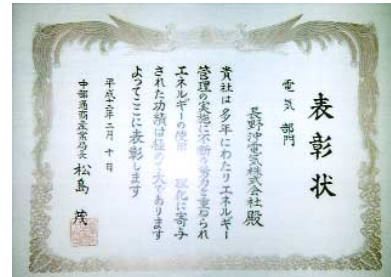 表彰状
電気 部門
長野沖電気株式会社殿
貴社は多年にわたりエネルギー
管理の実施に不断の努力を重ねられ
エネルギーの使用 理化に寄与
された功績は極めて大であります
よってここに表彰します
平成十二年二月十日
中部通商産業局長 松島 茂